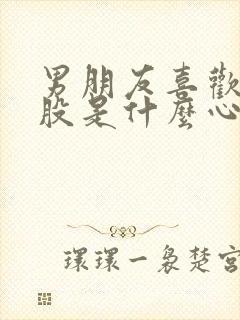 男朋友喜歡
股是什麼心
環環一裊楚宮